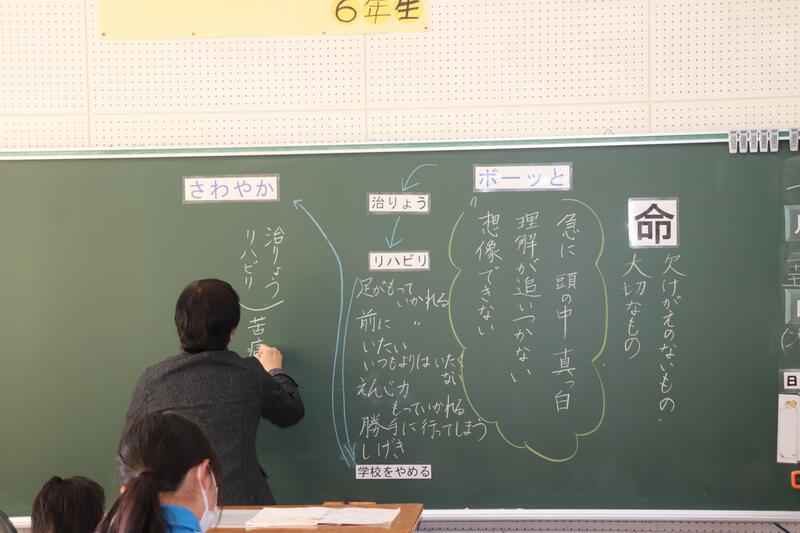 6年生
命
欠けがえのないもの.
大切なもの
ボーッと
急に 頭の中 真っ白
理解が追いつかない
想像できない
治りょう
リハビリ
足がもって
いかれる
前に 〃
いたい
いつもよりはいたく
ない
えんじ力
もっていかれる
勝手に行ってしまう
しげき
学校をやめる
さわやか
治りょう
リハビリ
苦痛
日